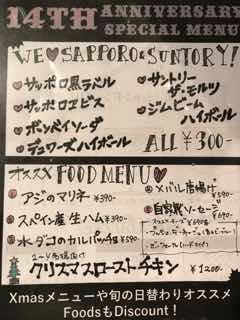 14TH ANNIVERSARY
SPECIAL MENU
WE♥SAPPORO&SUNTORY!
♥サッポロ黒ラベル
♥サッポロエビス
♥ボンベイソーダ
♥デュワーズハイボール
♥サントリー
ザ・モルツ
♥ジムビーム
ハイボール
ALL ¥300-
オススメ FOOD MENU♥
アジのマリネ ¥390-
スペイン産生ハム ¥390-
水ダコのカルパッチョ ¥590-
メバル唐揚げ
¥590-
自家製ソーセージ
¥690-
クリスマスローストチキン ¥1200-
Xmasメニューや旬の日替わりオススメ
FoodsもDiscount！